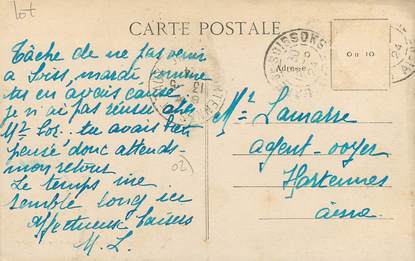 lot
CARTE POSTALE
Tâche de ne pas venir
à Soiss, mardi comme
tu en avais causé
je n'ai pas réussi avec
Mr . tu avais bien
pensé donc attends
mon retour
Le temps me
semble long ici
Affectueux baisers
M. L.
(02)
SOISSONS
Adresse
Mr Lamarre
agent-voyer
Hartennes
Aisne